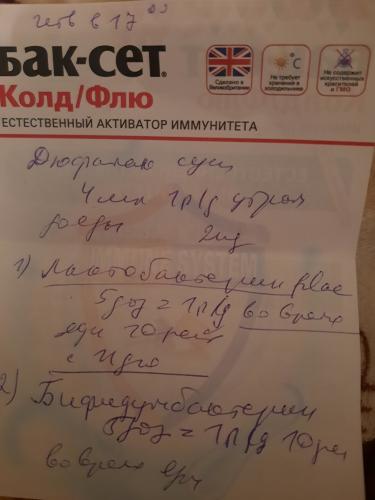 четв в 17 00
Бак-сет
Колд/Флю
ЕСТЕСТВЕННЫЙ АКТИВАТОР ИММУНИТЕТА
Сделано в Великобритании
°C
Не требует хранения в холодильнике
Не содержит искусственных красителей и ГМО
Дюфалак сусп
4 мл 1р/д утром
до еды 2нд
1) Лактобактерин
5 доз = 1р/д во время
еды 10 дней
2) Бифидумбактерин
5 доз = 1р/д 10
во время еды